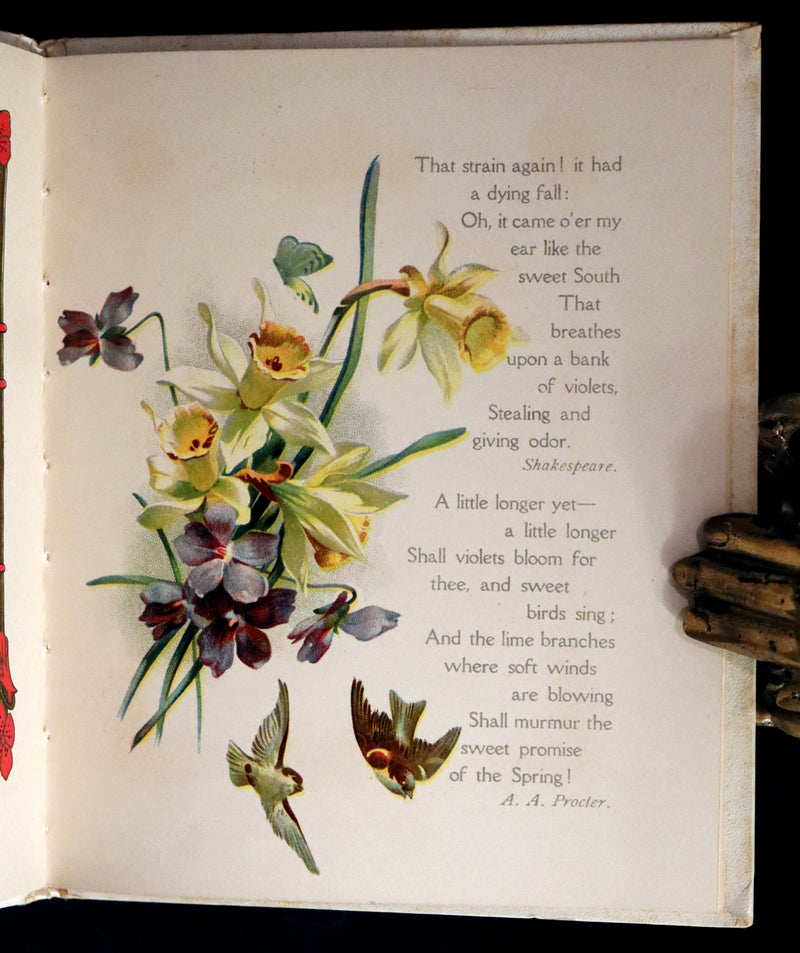 That strain again! it had
a dying fall:
Oh, it came o'er my
ear like the
sweet South
That
breathes
upon a bank
of violets,
Stealing and
giving odor.
Shakespeare.
A little longer yet—
a little longer
Shall violets bloom for
thee, and sweet
birds sing;
And the lime branches
where soft winds
are blowing
Shall murmur the
sweet promise
of the Spring!
A. A. Procter.